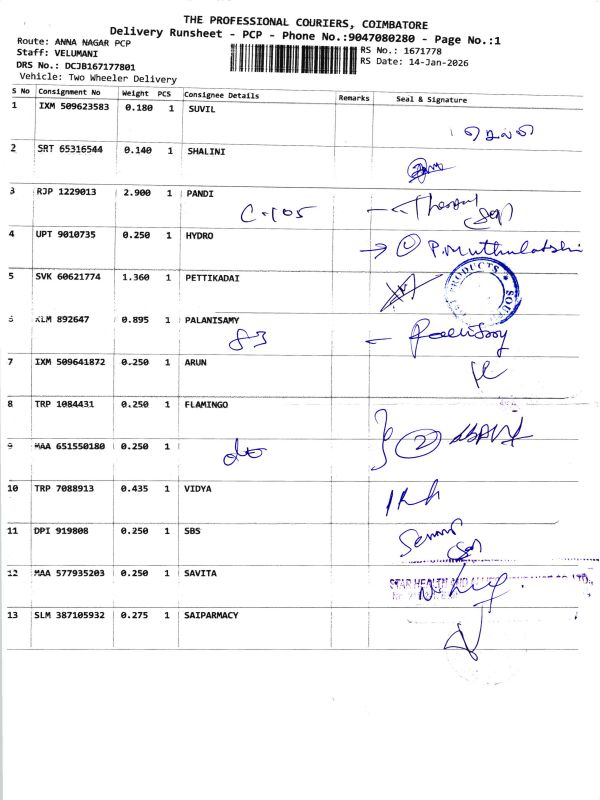 THE PROFESSIONAL COURIERS, COIMBATORE
Delivery Runsheet - PCP - Phone No.:9047080280 - Page No.:1
Route: ANNA NAGAR PCP
Staff: VELUMANI
RS No.: 1671778
DRS No.: DCJB167177801
RS Date: 14-Jan-2026
Vehicle: Two Wheeler Delivery
S No Consignment No Weight PCS Consignee Details Remarks Seal & Signature
1 IXM 509623583 0.180 1 SUVIL
2 SRT 65316544 0.140 1 SHALINI
3 RJP 1229013 2.900 1 PANDI
C-105
4 UPT 9010735 0.250 1 HYDRO P.Muthulakshi
5 SVK 60621774 1.360 1 PETTIKADAI
PRODUCTS
6 KLM 892647 0.895 1 PALANISAMY
83
7 IXM 509641872 0.250 1 ARUN
8 TRP 1084431 0.250 1 FLAMINGO
2
9 MAA 651550180 0.250 1
do
10 TRP 7088913 0.435 1 VIDYA
11 DPI 919808 0.250 1 SBS
12 MAA 577935203 0.250 1 SAVITA
STAR HEALTH AND
13 SLM 387105932 0.275 1 SAIPARMACY